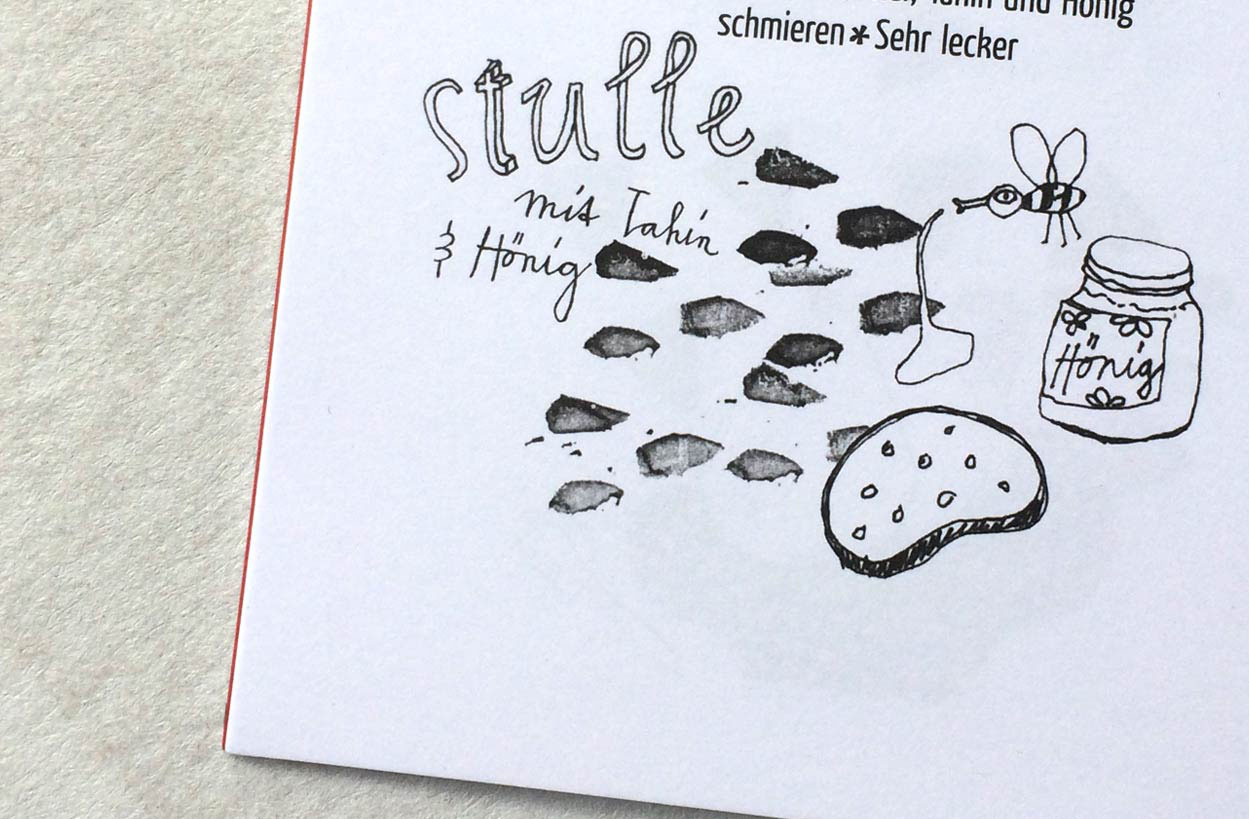 Tahin und Honig
schmieren*Sehr lecker
stulle
mit Tahin
& Hönig
Hönig